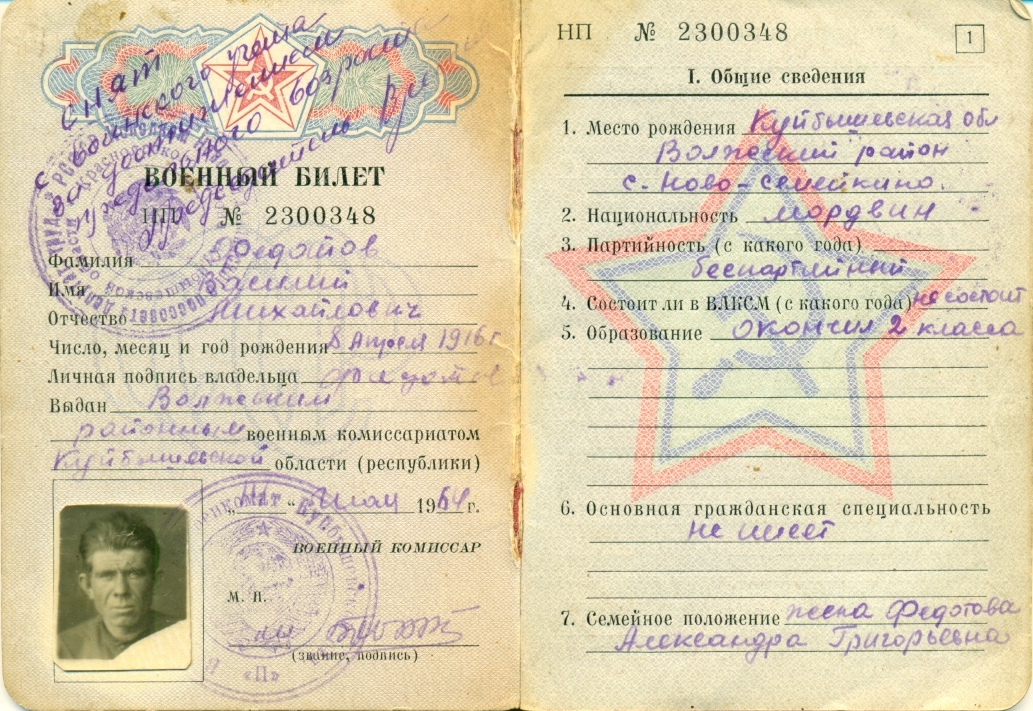 снят
с воинского учета
за достижением
предельного возраста
ВОЕННЫЙ БИЛЕТ
НП № 2300348
Фамилия Федотов
Имя Василий
Отчество Михайлович
Число, месяц и год рождения 8 Апреля 1916 г
Личная подпись владельца Федотов
Выдан Волжским
районным военным комиссариатом
Куйбышевской области (республики)
1964 г.
ВОЕННЫЙ КОМИССАР
М. П.
(звание, подпись)
«П»
НП № 2300348
1
I. Общие сведения
1. Место рождения Куйбышевская обл
Волжский район
с. Ново-Семейкино.
2. Национальность мордвин
3. Партийность (с какого года)
беспартийный
4. Состоит ли в ВЛКСМ (с какого года) не состоит
5. Образование окончил 2 класса
6. Основная гражданская специальность
не имеет
7. Семейное положение жена Федотова
Александра Григорьевна